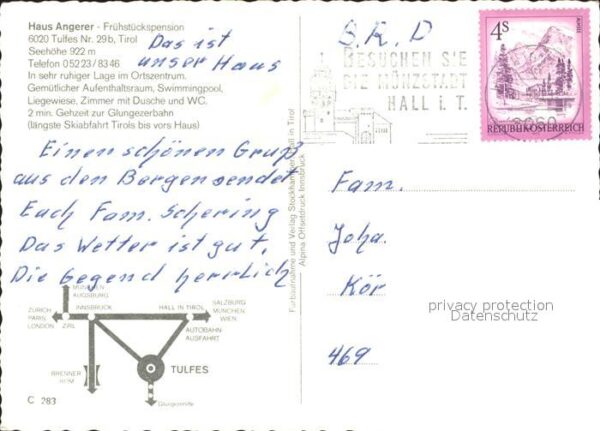 Haus Angerer - Frühstückspension
6020 Tulfes Nr. 29b, Tirol
Seehöhe 922 m
Telefon 05223/8346
In sehr ruhiger Lage im Ortszentrum.
Gemütlicher Aufenthaltsraum, Swimmingpool,
Liegewiese, Zimmer mit Dusche und WC.
2 min. Gehzeit zur Glungezerbahn
(längste Skiabfahrt Tirols bis vors Haus)
Das ist
unser Haus
Einen schönen Gruß
aus den Bergen sendet
Euch Fam. Schering
Das Wetter ist gut,
Die Gegend herrlich
MÜNCHEN
AUGSBURG
ZÜRICH
PARIS
LONDON
INNSBRUCK
ZIRL
HALL IN TIROL
SALZBURG
MÜNCHEN
WIEN
AUTOBAHN-
AUSFAHRT
BRENNER
ROM
TULFES
Glungezerhütte
C 283
Alpina Offsetdruck Innsbruck
B.R.D
BESUCHEN SIE
DIE MÜNZSTADT
HALL i. T.
4S
ALMSEE
REPUBLIK ÖSTERREICH
6060
Fam.
Joha.
Kör
469
privacy protection
Datenschutz